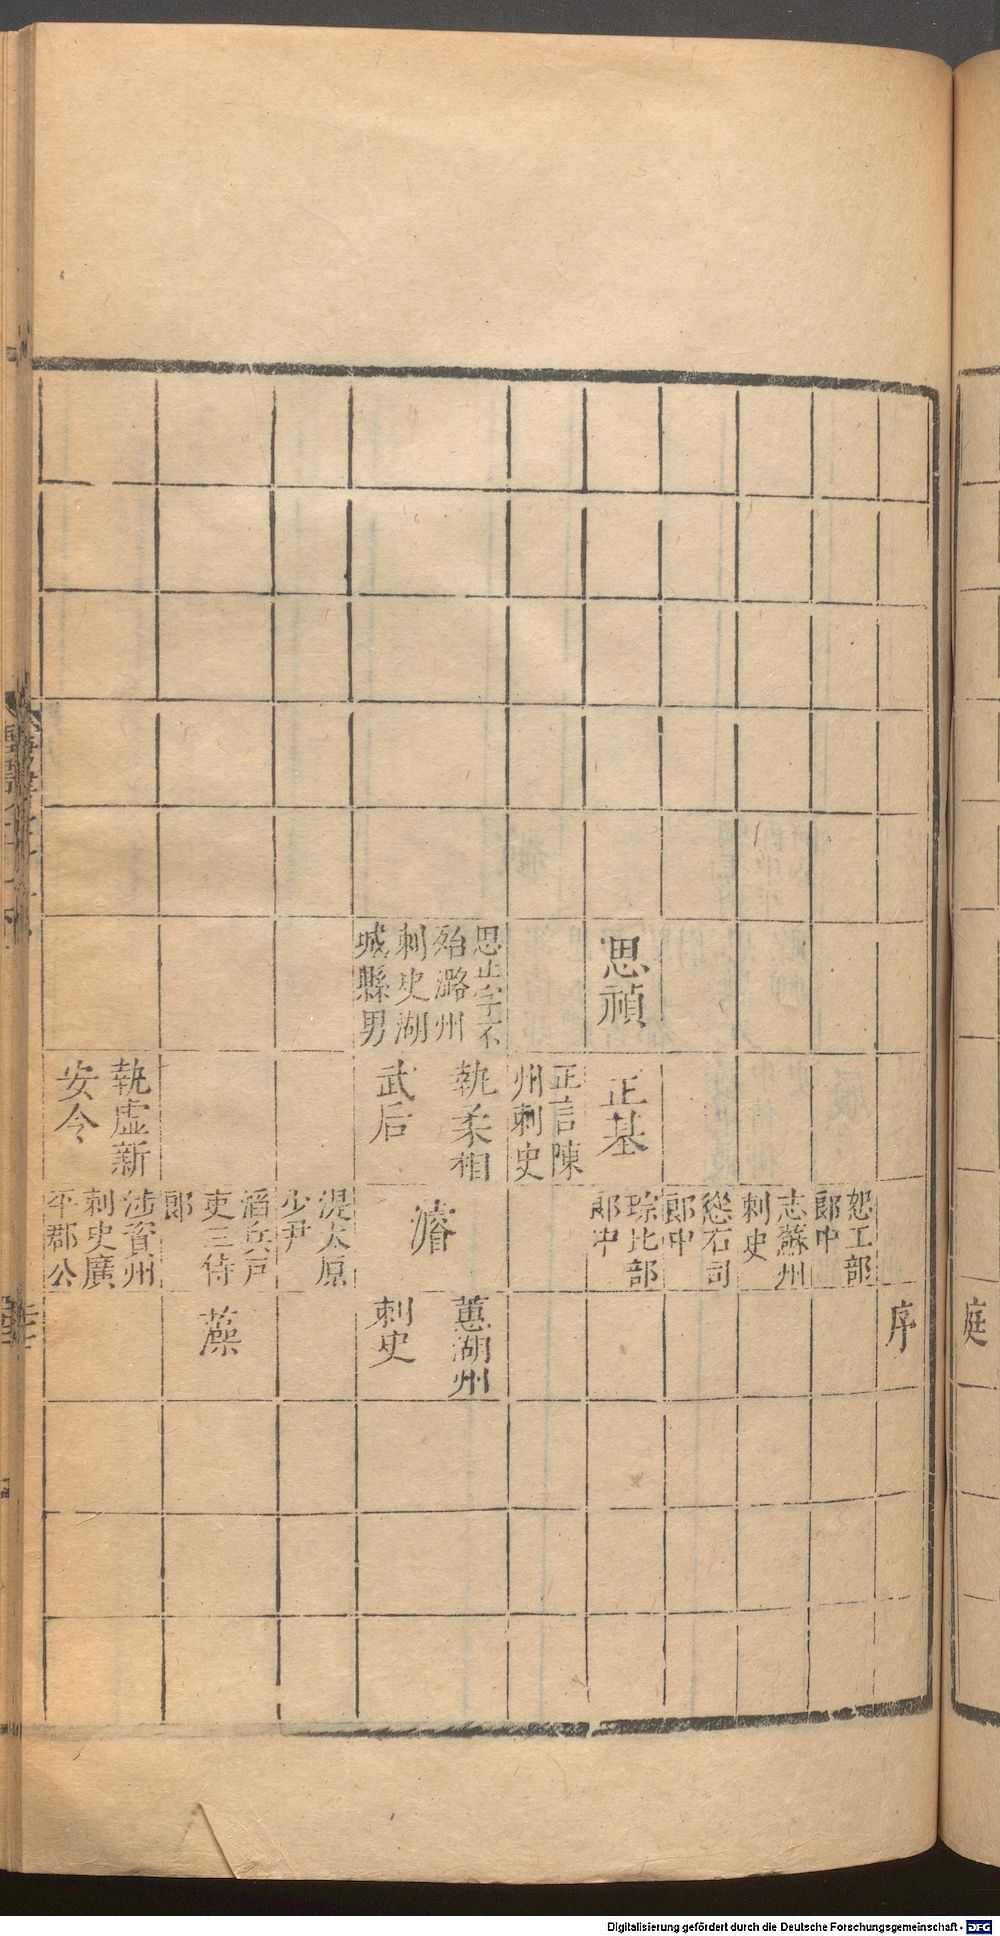 庭
序
恕工部
郎中
志蘇州
刺史
愻右司
郎中
琮比部
郎中
思禎
正基
正言陳
州刺史
思止字不
殆潞州
刺史湖
城縣男
執柔相
武后
濬
蕙湖州
刺史
湜太原
少尹
滔兵戸
吏三侍
郎
藻
執虛新
安令
涉資州
刺史廣
平郡公
Digitalisierung gefördert durch die Deutsche Forschungsgemeinschaft - DFG